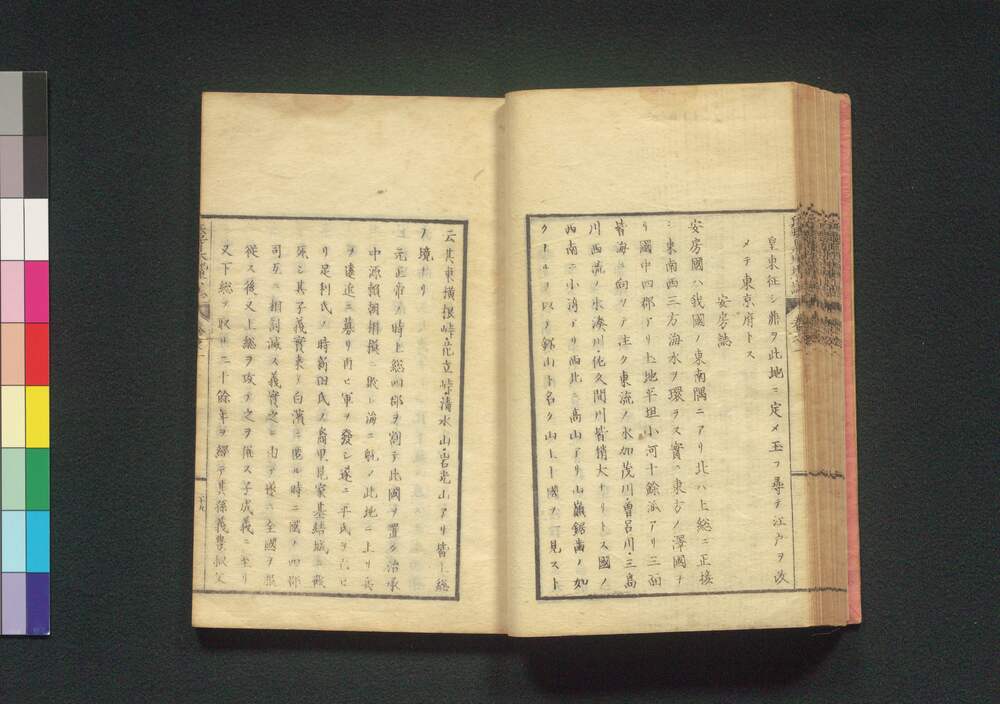 皇東征シ鼎ヲ此地ニ定メ玉フ尋テ江戸ヲ改
メテ東京府トス
安房誌
安房國ハ我國ノ東南隅ニアリ北ハ上総ニ正接
シ東南西三方海水ヲ環ラス實ニ東方ノ澤國ナ
リ國中四郡アリ土地平坦小河十餘派アリ三面
皆海ニ向ツテ注ク東流ノ水加茂川・曽呂川・三高
川西流ノ水湊川・佐久間川皆稍大ナリトス國ノ
西南ニ小湾アリ西北ニ高山アリ山巓鋸歯ノ如
クナルヲ以テ鋸山ト名ク山上十國ヲ一見スト
云其東横根峠・花立峠清水山・岩光山アリ皆上総
ノ境ナリ
元正帝ノ時上総四郡ヲ割テ此國ヲ置ク治承
中源頼朝相模ニ敗レ海ニ航ノ此地ニ上リ兵
ヲ遠近ニ募リ再ヒ軍ヲ發シ遂ニ平氏ヲ亡ヒ
リ足利氏ノ時新田氏ノ裔里見家基結城ニ戦
死シ其子義實来テ白濱ニ匿ル時ニ國ノ四郡
司互ニ相討滅ス義實之ニ由テ遂ニ全國ヲ服
從ス後又上総ヲ攻テ之ヲ併ス子成義ニ至リ
又下総ヲ収ム二十餘年ヲ經テ其孫義豊叔父